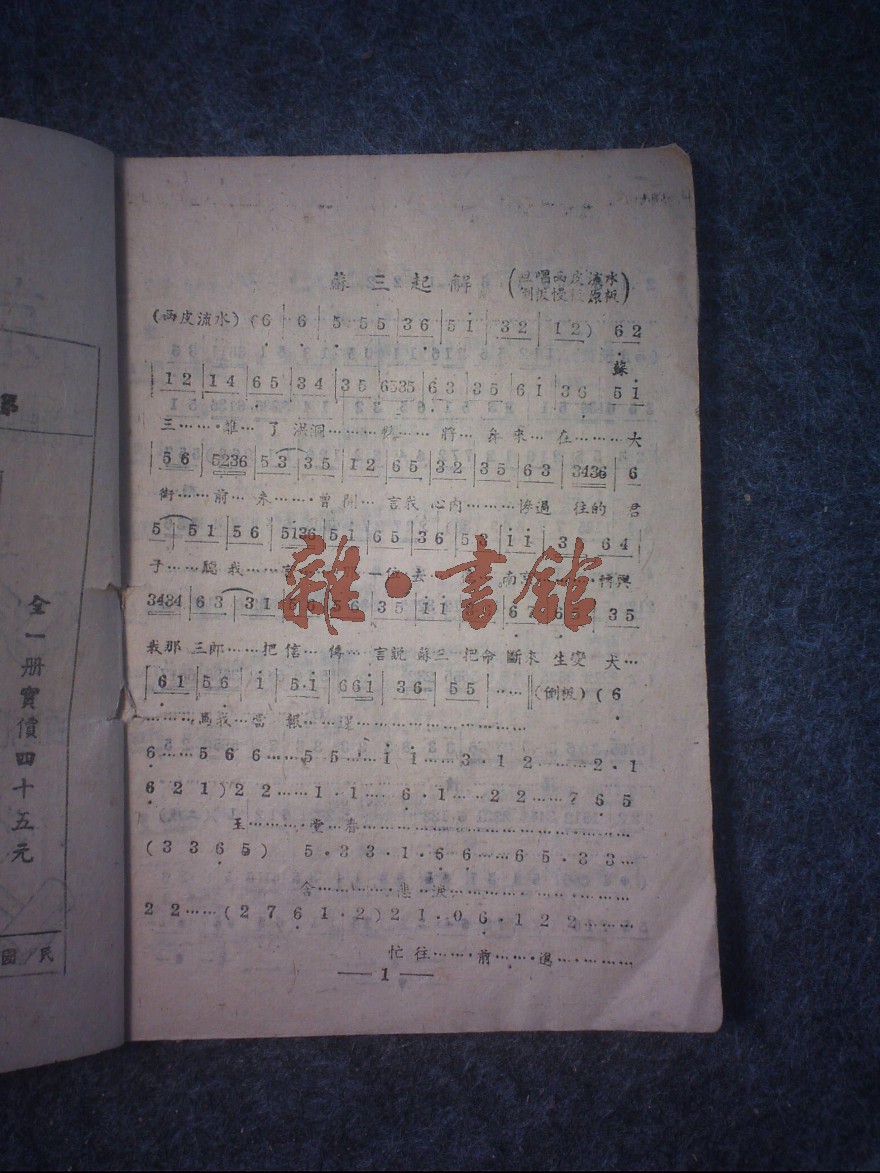 全一冊實價四十五元
民國
蘇三起解
(旦唱西皮流水
倒板慢板原板)
(西皮流水) (6 | 6 | 5 55 | 36 | 5i | 32 | 12) | 62
蘇
| 12 | 14 | 65 | 34 | 35 | 6535 | 63 | 35 | 6i | 36 | 5i
三……離…了 洪洞………縣……將…身來…在………大
| 56 | 5236 | 53 | 35 | 12 | 65 | 32 | 35 | 63 | 3436 | 6
街……前…未………曾開…言我 心內………慘過 往的 君
5 | 51 | 56 | 5i36 | 5i | 65 | 36 | 53 | ii | 3 | 64 |
子……聽我……言 一位去 南京 轉與
3434 | 63 | 31 | 56 | 56 | 35 | ii | 67 | 65 | 35
我那 三郎……把信…傳…言說 蘇三 把命 斷來 生變 犬…
| 61 | 56 | i | 5·i | 66i | 36 | 55 |……‖(倒板) ( 6
………馬我…當 報…還……………………
6……5 6 6……5 5……i i……3·1 2……2·1
6 2 1 ) 2 2……1·1……6·1……2 2……7 6 5
玉………堂…春………………………………
( 3 3 6 5 ) 5·3 3·1·6 6……6 5·3 3…
含…………悲…淚……………………
2 2……( 2 7 6 1·2 ) 2 1·0 6·1 2 2………
忙往………前…進…………
— 1 —
雜·書館